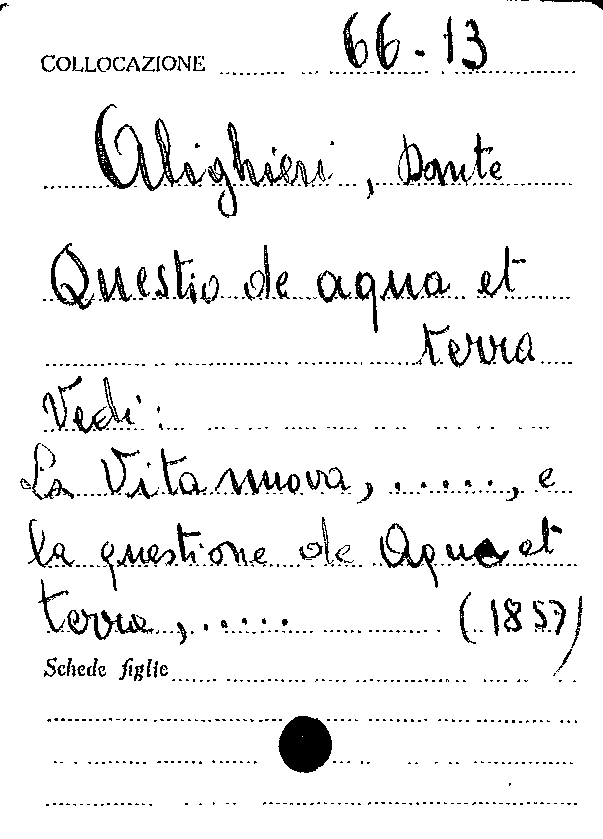 COLLOCAZIONE 66-13
Alighieri, Dante
Questio de aqua et
terra
Vedi:
La Vita nuova, ....., e
la questione de Aqua et
terra, ..... (1857)
Schede figlie